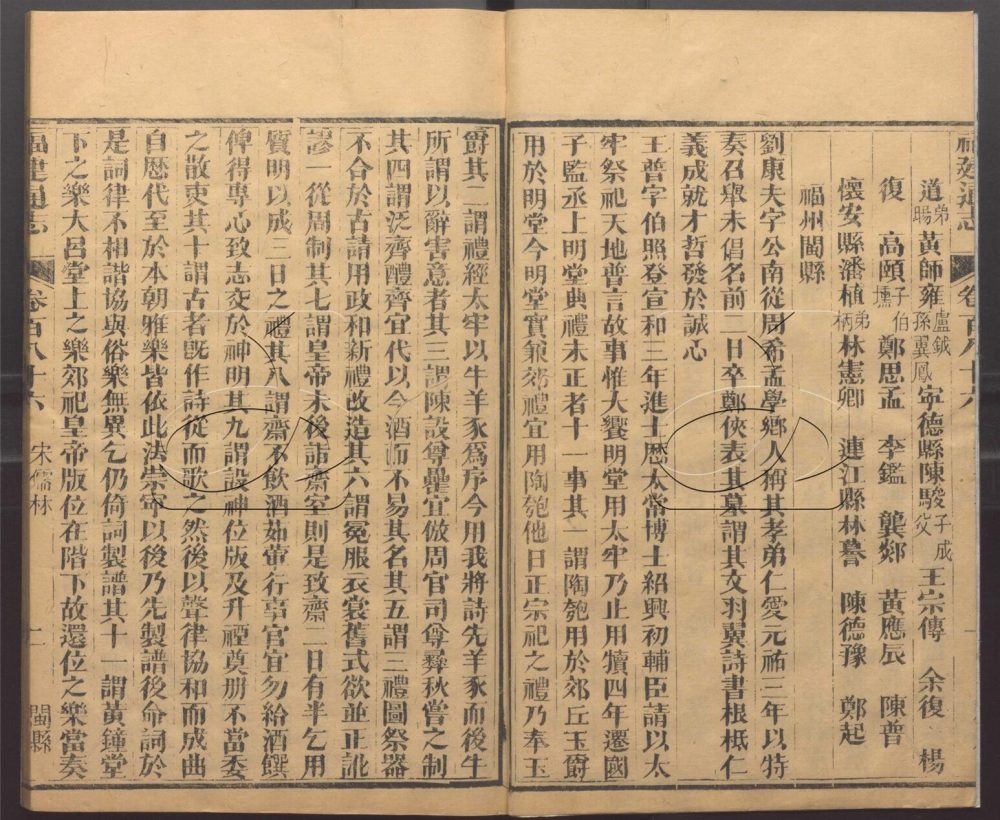 福建通志
卷百八十六
道弟暘黃師雍盧鉞孫翼鳳寧德縣陳駿子成父王宗傳　余復　楊
復　高頤子伯壎鄭思孟　李鑑　龔郯　黃應辰　陳普
懷安縣潘植弟柄林憲卿　連江縣林謩　陳德豫　鄭起
福州閩縣
劉康夫字公南從周希孟學鄉人稱其孝弟仁愛元祐三年以特
奏召舉未倡名前一日卒鄭俠表其墓謂其文羽翼詩書根柢仁
義成就才哲發於誠心
王普字伯照登宣和三年進士歷太常博士紹興初輔臣請以太
牢祭祀天地普言故事惟大饗明堂用太牢乃止用犢四年遷國
子監丞上明堂典禮未正者十一事其一謂陶匏用於郊丘玉爵
用於明堂今明堂實兼郊禮宜用陶匏他日正宗祀之禮乃奉玉
爵其二謂禮經太牢以牛羊豕爲序今用我將詩先羊豕而後牛
所謂以辭害意者其三謂陳設尊罍宜倣周官司尊彝秋嘗之制
其四謂泛齊醴齊宜代以今酒而不易其名其五謂三禮圖祭器
不合於古請用政和新禮改造其六謂冕服衣裳舊式欲並正訛
謬一從周制其七謂皇帝未後詣齋室則是致齋二日有半乞用
質明以成三日之禮其八謂齋不飲酒茹葷行事官宜勿給酒饌
俾得專心致志交於神明其九謂設神位版及升禋奠册不當委
之散吏其十謂古者旣作詩從而歌之然後以聲律協和而成曲
自歷代至於本朝雅樂皆依此法崇寧以後乃先製譜後命詞於
是詞律不相諧協與俗樂無異乞仍倚詞製譜其十一謂黃鐘堂
下之樂大呂堂上之樂郊祀皇帝版位在階下故還位之樂當奏
福建通志
卷百八十六
宋儒林
二
閩縣